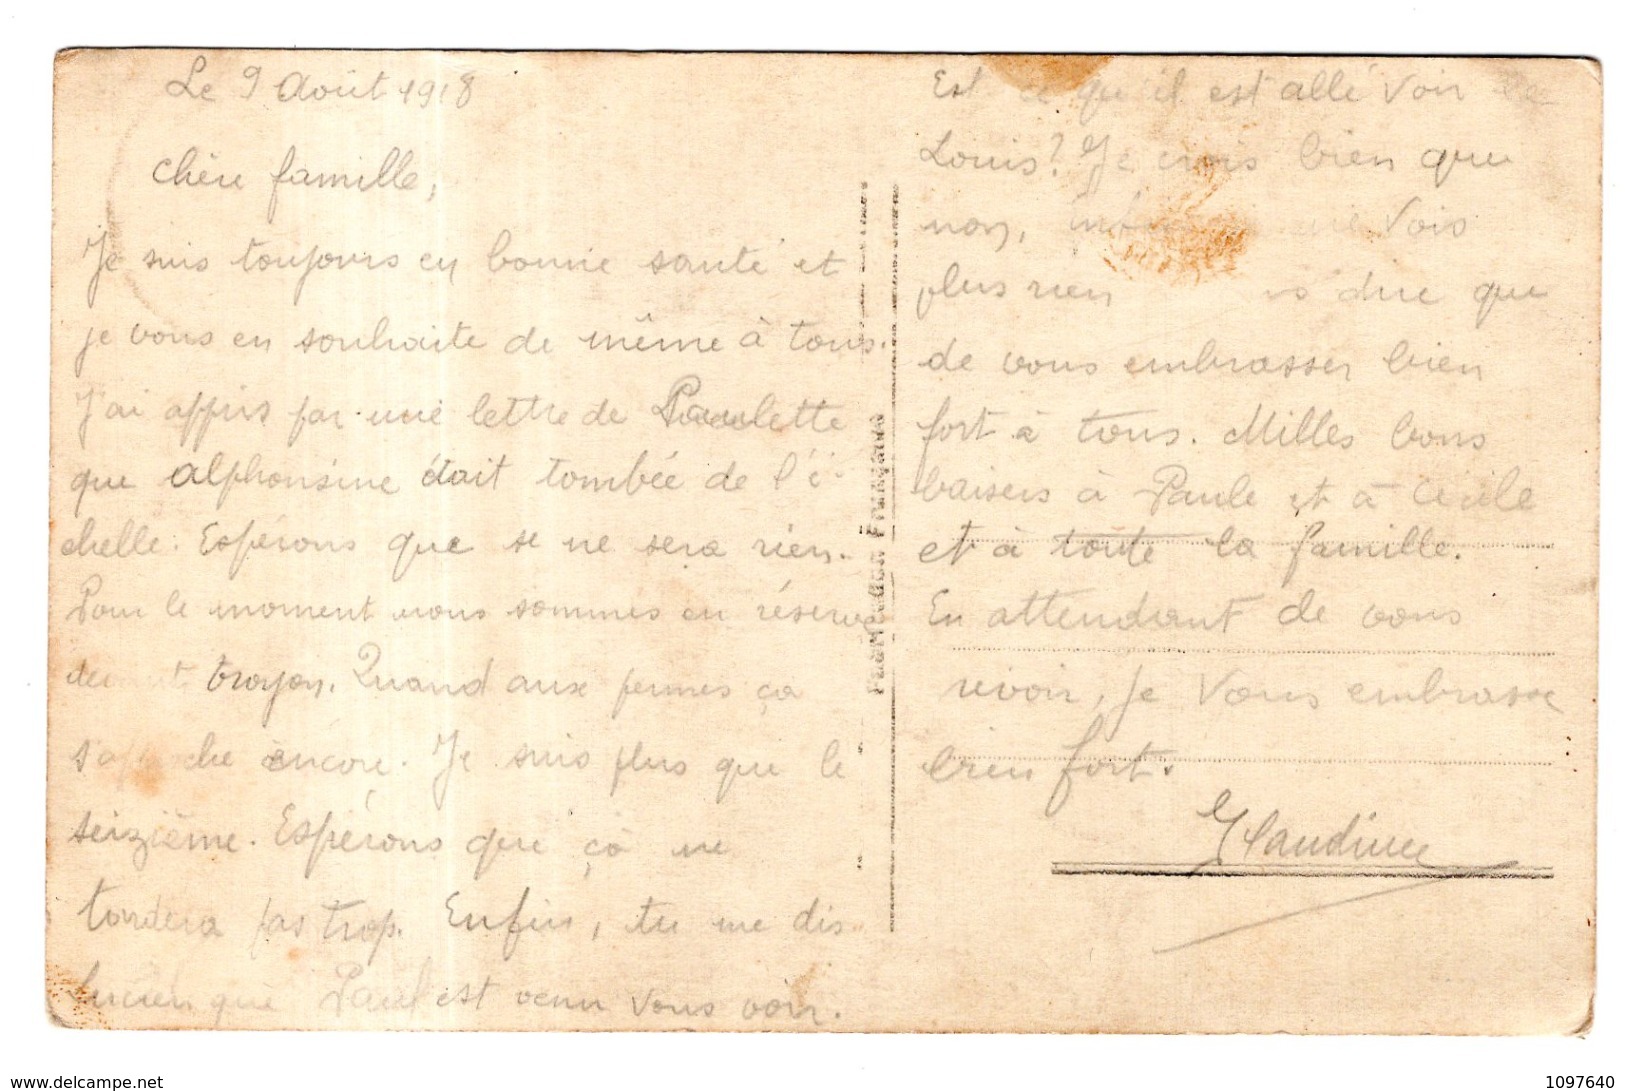 Le 9 Août 1918
Chère famille,
Je suis toujours en bonne santé et
je vous en souhaite de même à tous.
J'ai appris par une lettre de Paulette
que Alphonsine était tombée de l'é-
chelle. Espérons que se ne sera rien.
Pour le moment nous sommes en réserve
troyon. Quand aux permes ça
encore. Je suis plus que le
seizième. Espérons que ça ne
tardera pas trop. Enfin, tu me dis
Lucien que Paul est venu vous voir.
Est ce qu'il est allé voir
Louis? Je crois bien que
non, ne vois
plus rien dire que
de vous embrasser bien
fort à tous. Milles bons
baisers à Paule et à Cécile
et à toute la famille.
En attendant de vous
revoir, je vous embrasse
bien fort.
delcampe.net
1097640